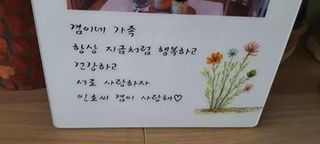 겸이네 가족
항상 지금처럼 행복하고
건강하고
서로 사랑하자
인호씨 겸이 사랑해♡